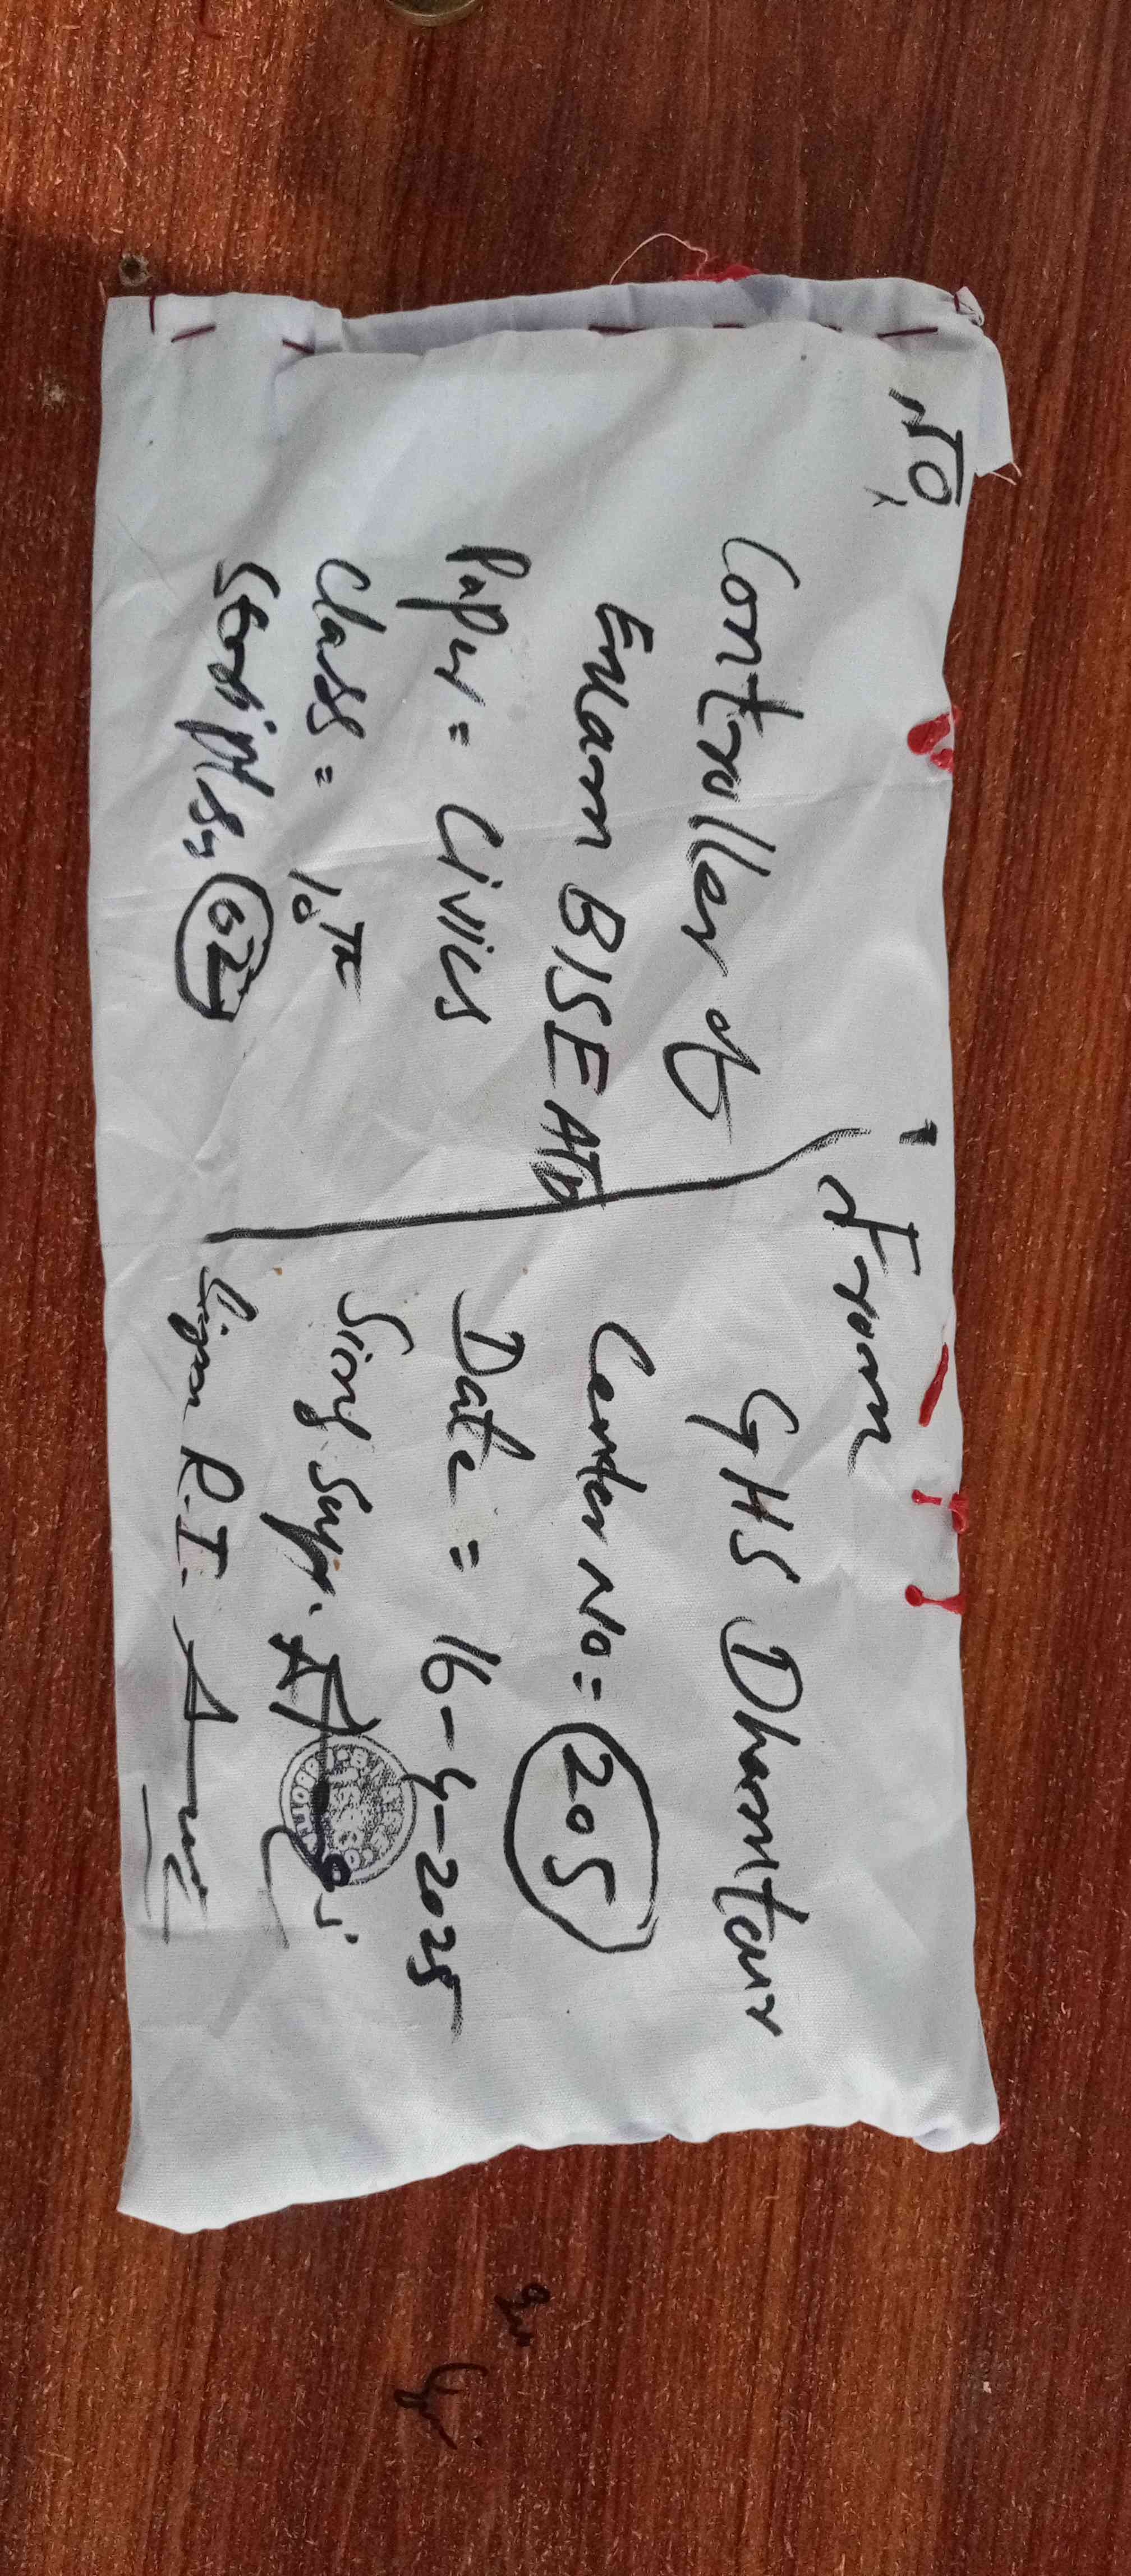 To,
Controller of
Exam BISE ATD
Paper = Civics
Class = 10TH
Scripts = 02
From
GHS Dhamtour
Center No = 205
Date = 16-4-2025
Sign Supp.
Sign R.I.